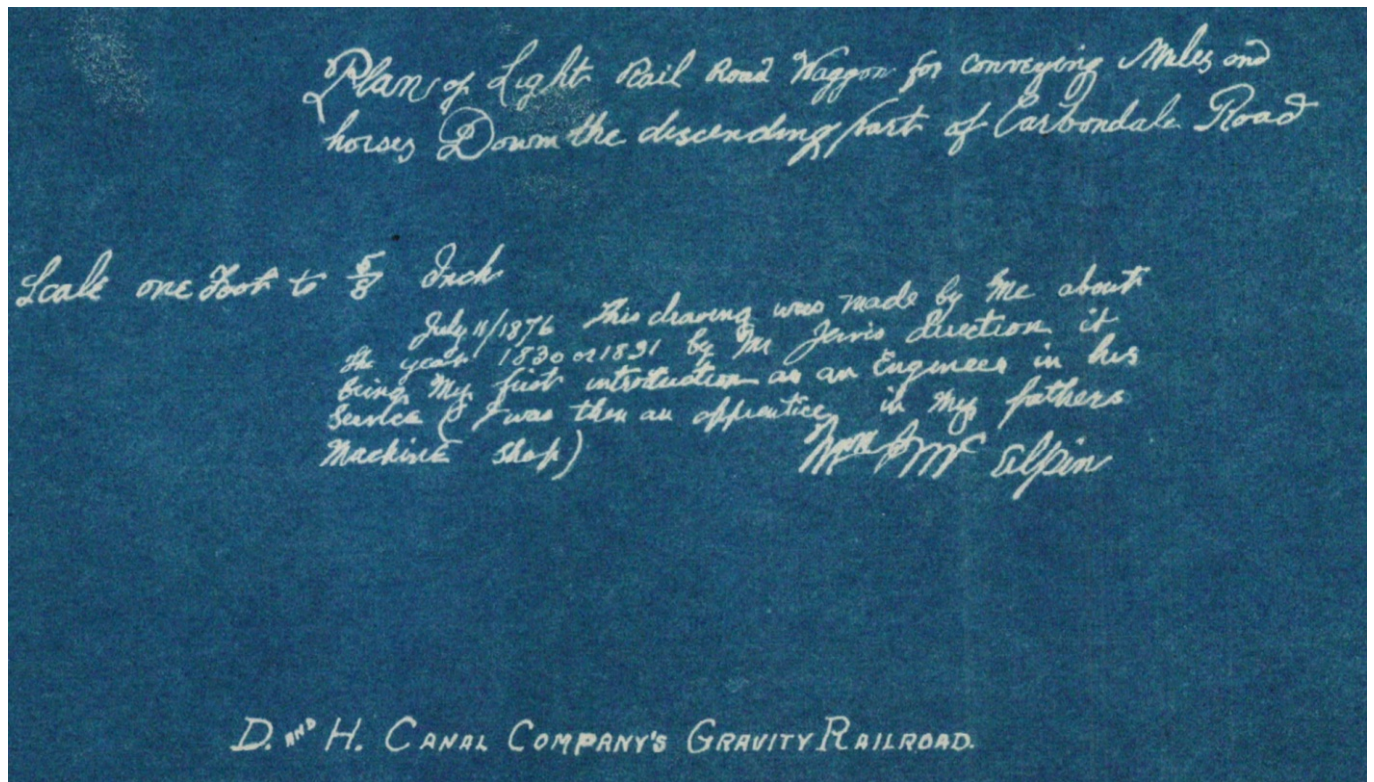 Plan of Light Rail Road Waggon for conveying Mules and
horses Down the descending part of Carbondale Road
Scale one Foot to 5/8 Inch
July 11/1876 This drawing was made by Me about
the year 1830 or 1831 by Mr Jervis direction it
being My first introduction as an Engineer in his
Service (I was then an apprentice in my fathers
Machine shop)
Wm J Mc Elpin
D. AND H. CANAL COMPANY'S GRAVITY RAILROAD.